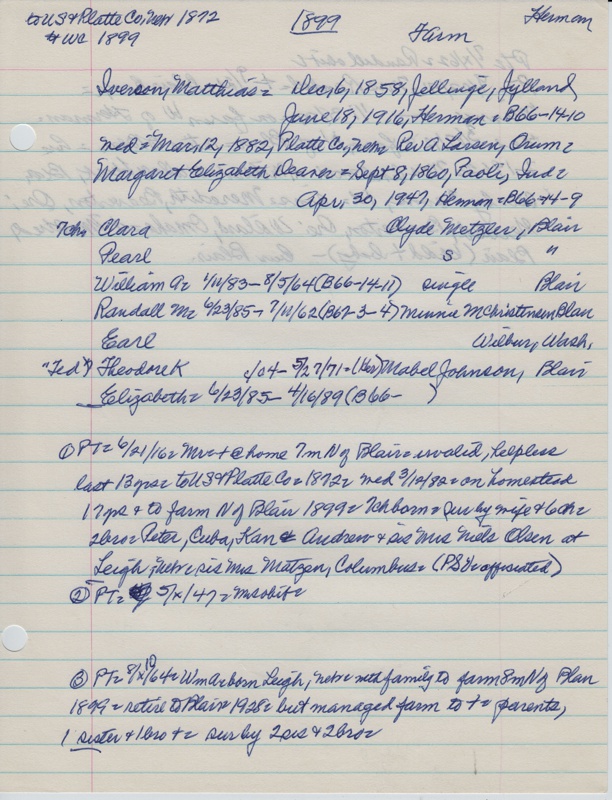 to US & Platte Co, Nebr 1872 1899 Herman
to WC 1899 Farm
Iverson, Matthias = Dec, 6, 1858, Jellinge, Jylland
June 18, 1916, Herman = B66-14-10
med = Mar, 12, 1882, Platte Co, Nebr = Rev A Larsen, Orum =
Margaret Elizabeth Deaver = Sept 8, 1860, Paoli, Ind =
Apr, 30, 1947, Herman = B66-14-9
7chn Clara Clyde Metzler, Blair
Pearl S "
William A = 1/11/83 - 8/5/64 (B66-14-11) single Blair
Randall M = 6/23/85 - 7/11/62 (B67-3-4) Minnie M Christensen Blair
Earl Wilbur, Wash,
"Ted") Theodore K /04 - 5/27/71 = Mabel Johnson, Blair
Elizabeth = 6/23/85 - 4/16/89 (B66- )
① PT = 6/21/16 = Mr = + @ home 7m N of Blair = invalid, helpless
last 13 yrs = to US & Platte Co = 1872 = med 3/12/82 = on homestead
17 yrs & to farm N of Blair 1899 = 7ch born = sur by wife & 6ch =
2bro = Peter, Cuba, Kan & Andrew & sis Mrs Niels Olsen at
Leigh, Nebr = sis Mrs Matzen, Columbus = (PSV = officiated)
② PT = 5/x/47 = no obit =
③ PT = 8/10/64 = Wm A = born Leigh, Nebr = with family to farm 8m N of Blair
1899 = retire to Blair 1928 = but managed farm to + = parents,
1 sister & 1 bro + = sur by 2 sis & 2 bro =